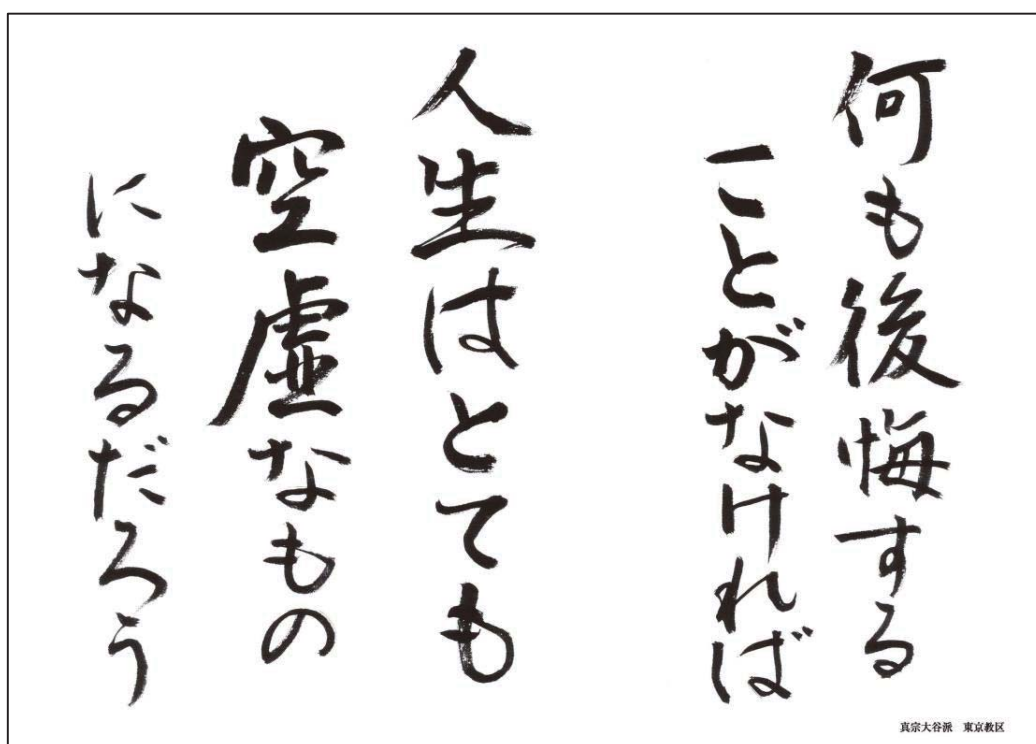 何も後悔する
ことがなければ
人生はとても
空虚なもの
になるだろう
真宗大谷派　東京教区